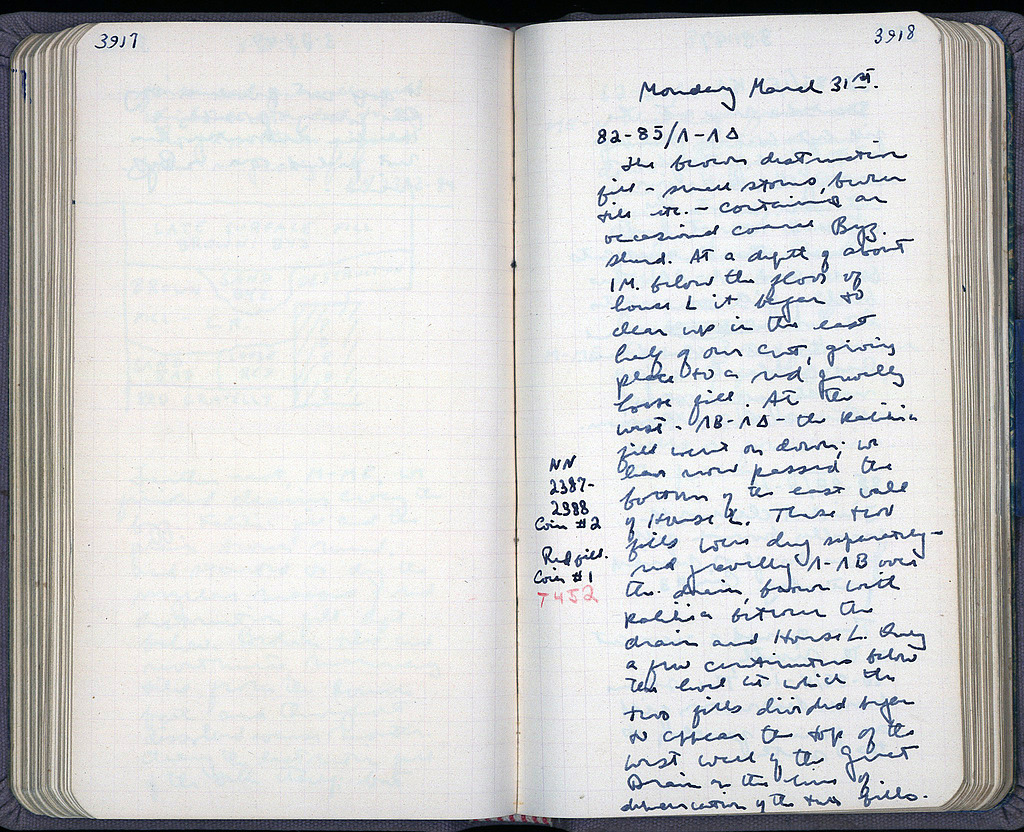 3917
3918
Monday March 31st.
82-85/Λ-ΛΔ
The brown destruction
fill - small stones, broken
tile etc. - contained an
occasional coarse Byz.
sherd. At a depth of about
1M. below the floor of
house L it began to
clear up in the east
half of our cut, giving
place to a red gravelly
loose fill. At the
west - ΛB-ΛΔ - the Kalikia
fill went on down; we
have now passed the
bottom of the east wall
of House L. These two
fills were dug separately -
red gravelly Λ-ΛB over
the drain, brown with
Kalikia between the
drain and House L. Only
a few centimeters below
the level at which the
two fills divided began
to appear the top of the
west wall of the Great
Drain on the line of
demarcation of the two fills.
NN
2387-
2388
Coin #2
Red fill.
Coin #1
T 452